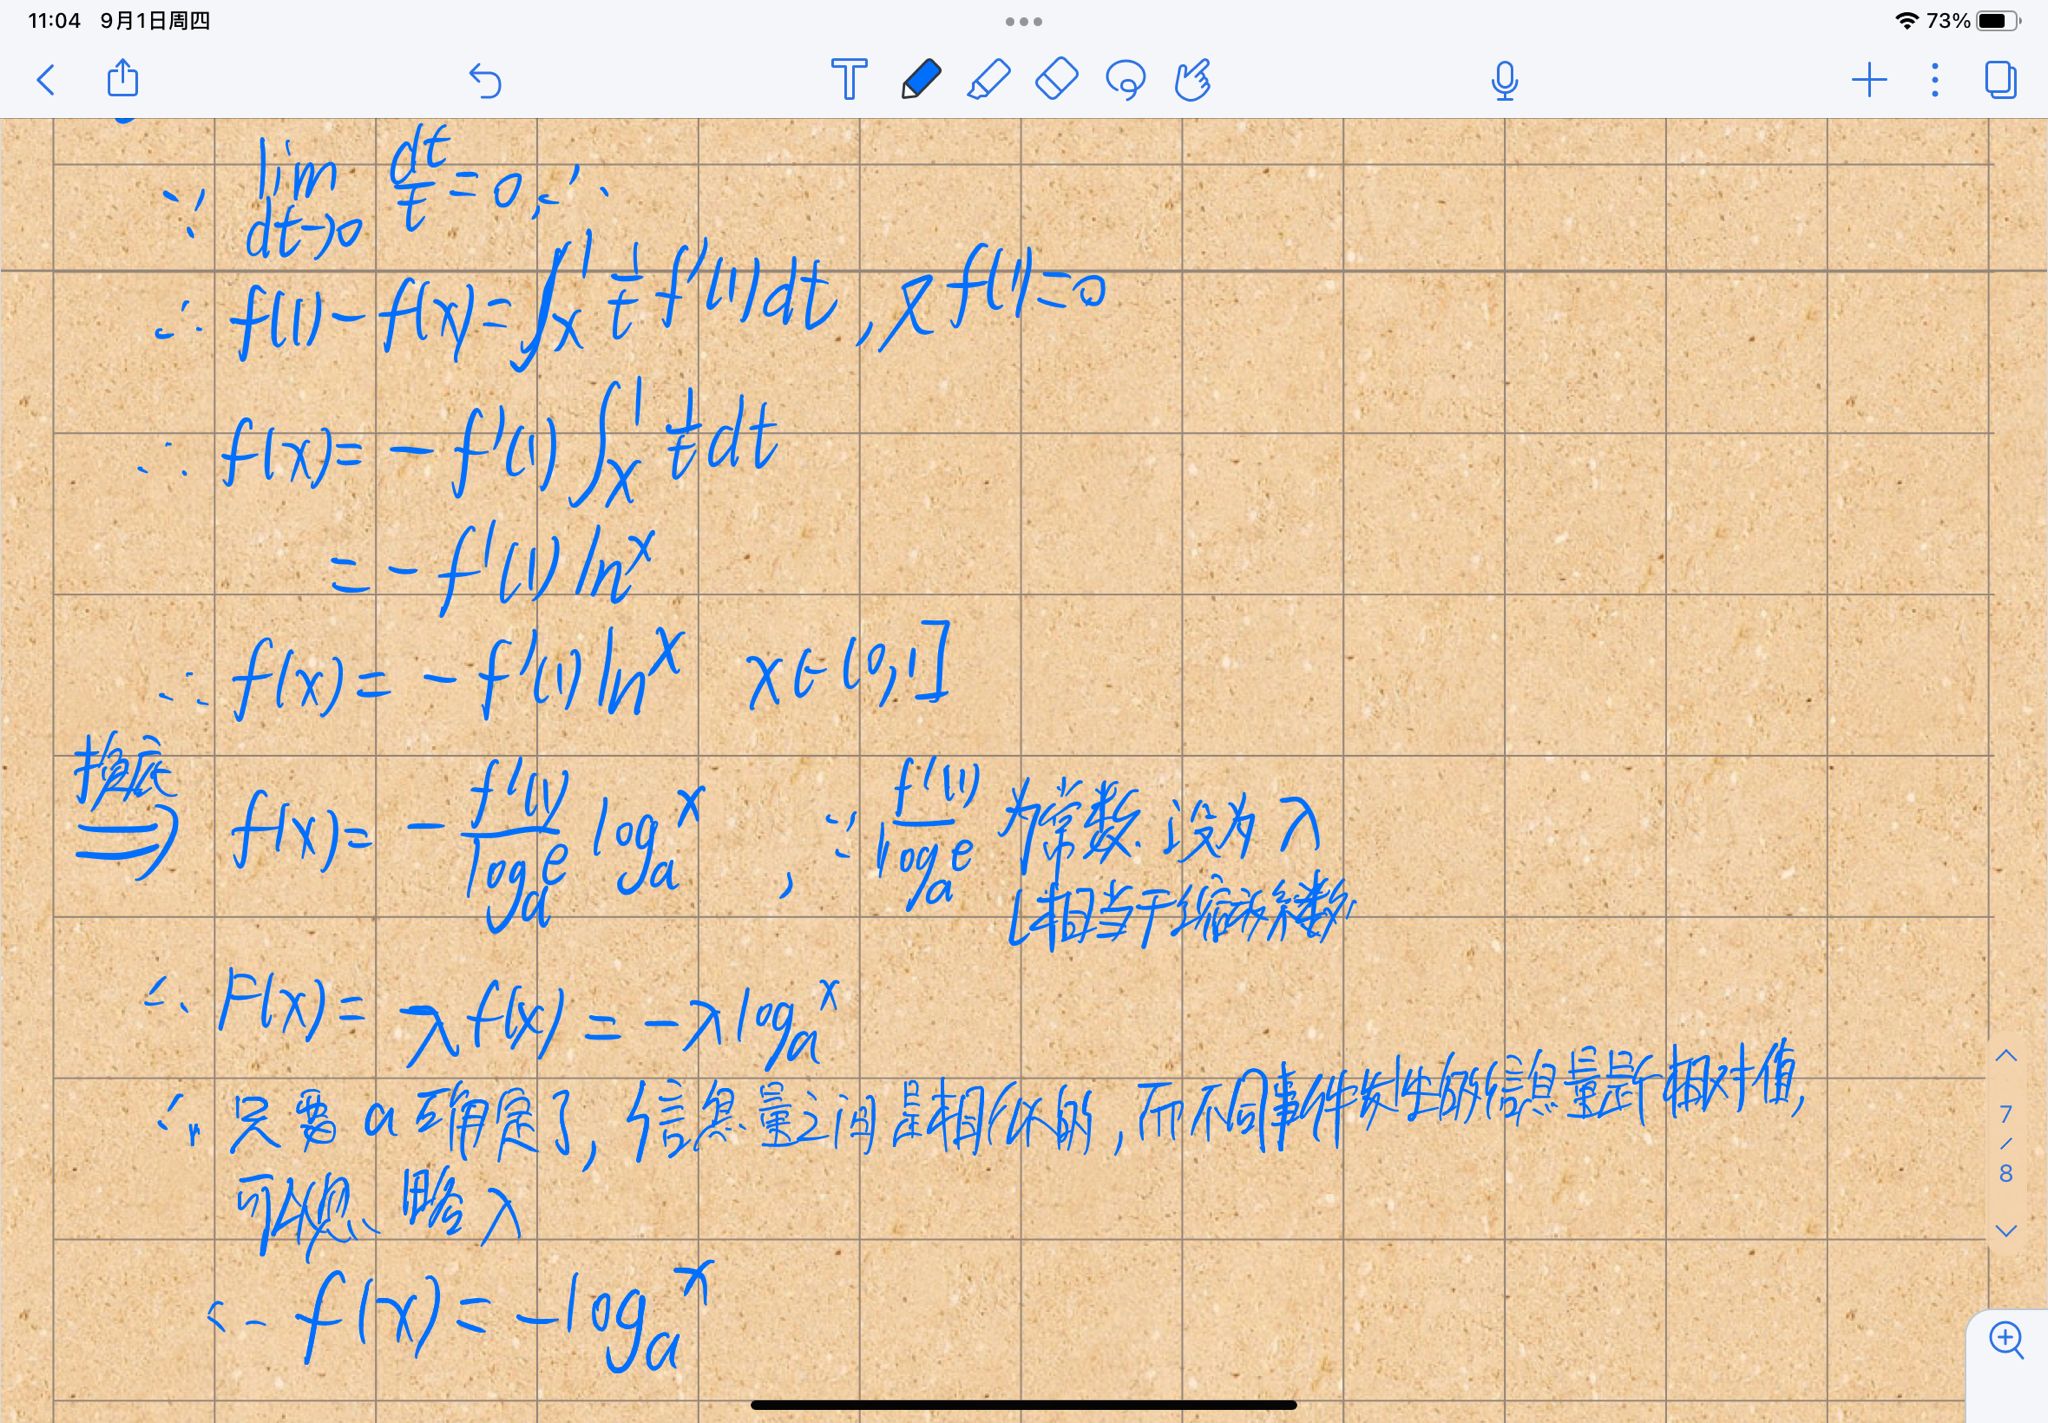 11:04 9月1日周四
73%
∵ lim dt→0 dt/t = 0, ∴
∴ f(1) - f(x) = ∫_x^1 1/t f'(1) dt , 又 f(1) = 0
∴ f(x) = - f'(1) ∫_x^1 1/t dt
= - f'(1) ln^x
∴ f(x) = - f'(1) ln^x x∈(0,1]
换底
⇒ f(x) = - f'(1)/log_a^e log_a^x , ∵ f'(1)/log_a^e 为常数. 设为 λ
(相当于缩放系数
∴ F(x) = λ f(x) = - λ log_a^x
∴ 只要 a 确定了, 信息量之间是相似的, 而不同事件发生的信息量是个相对值,
可以忽略 λ
∴ f(x) = - log_a^x
7
/
8